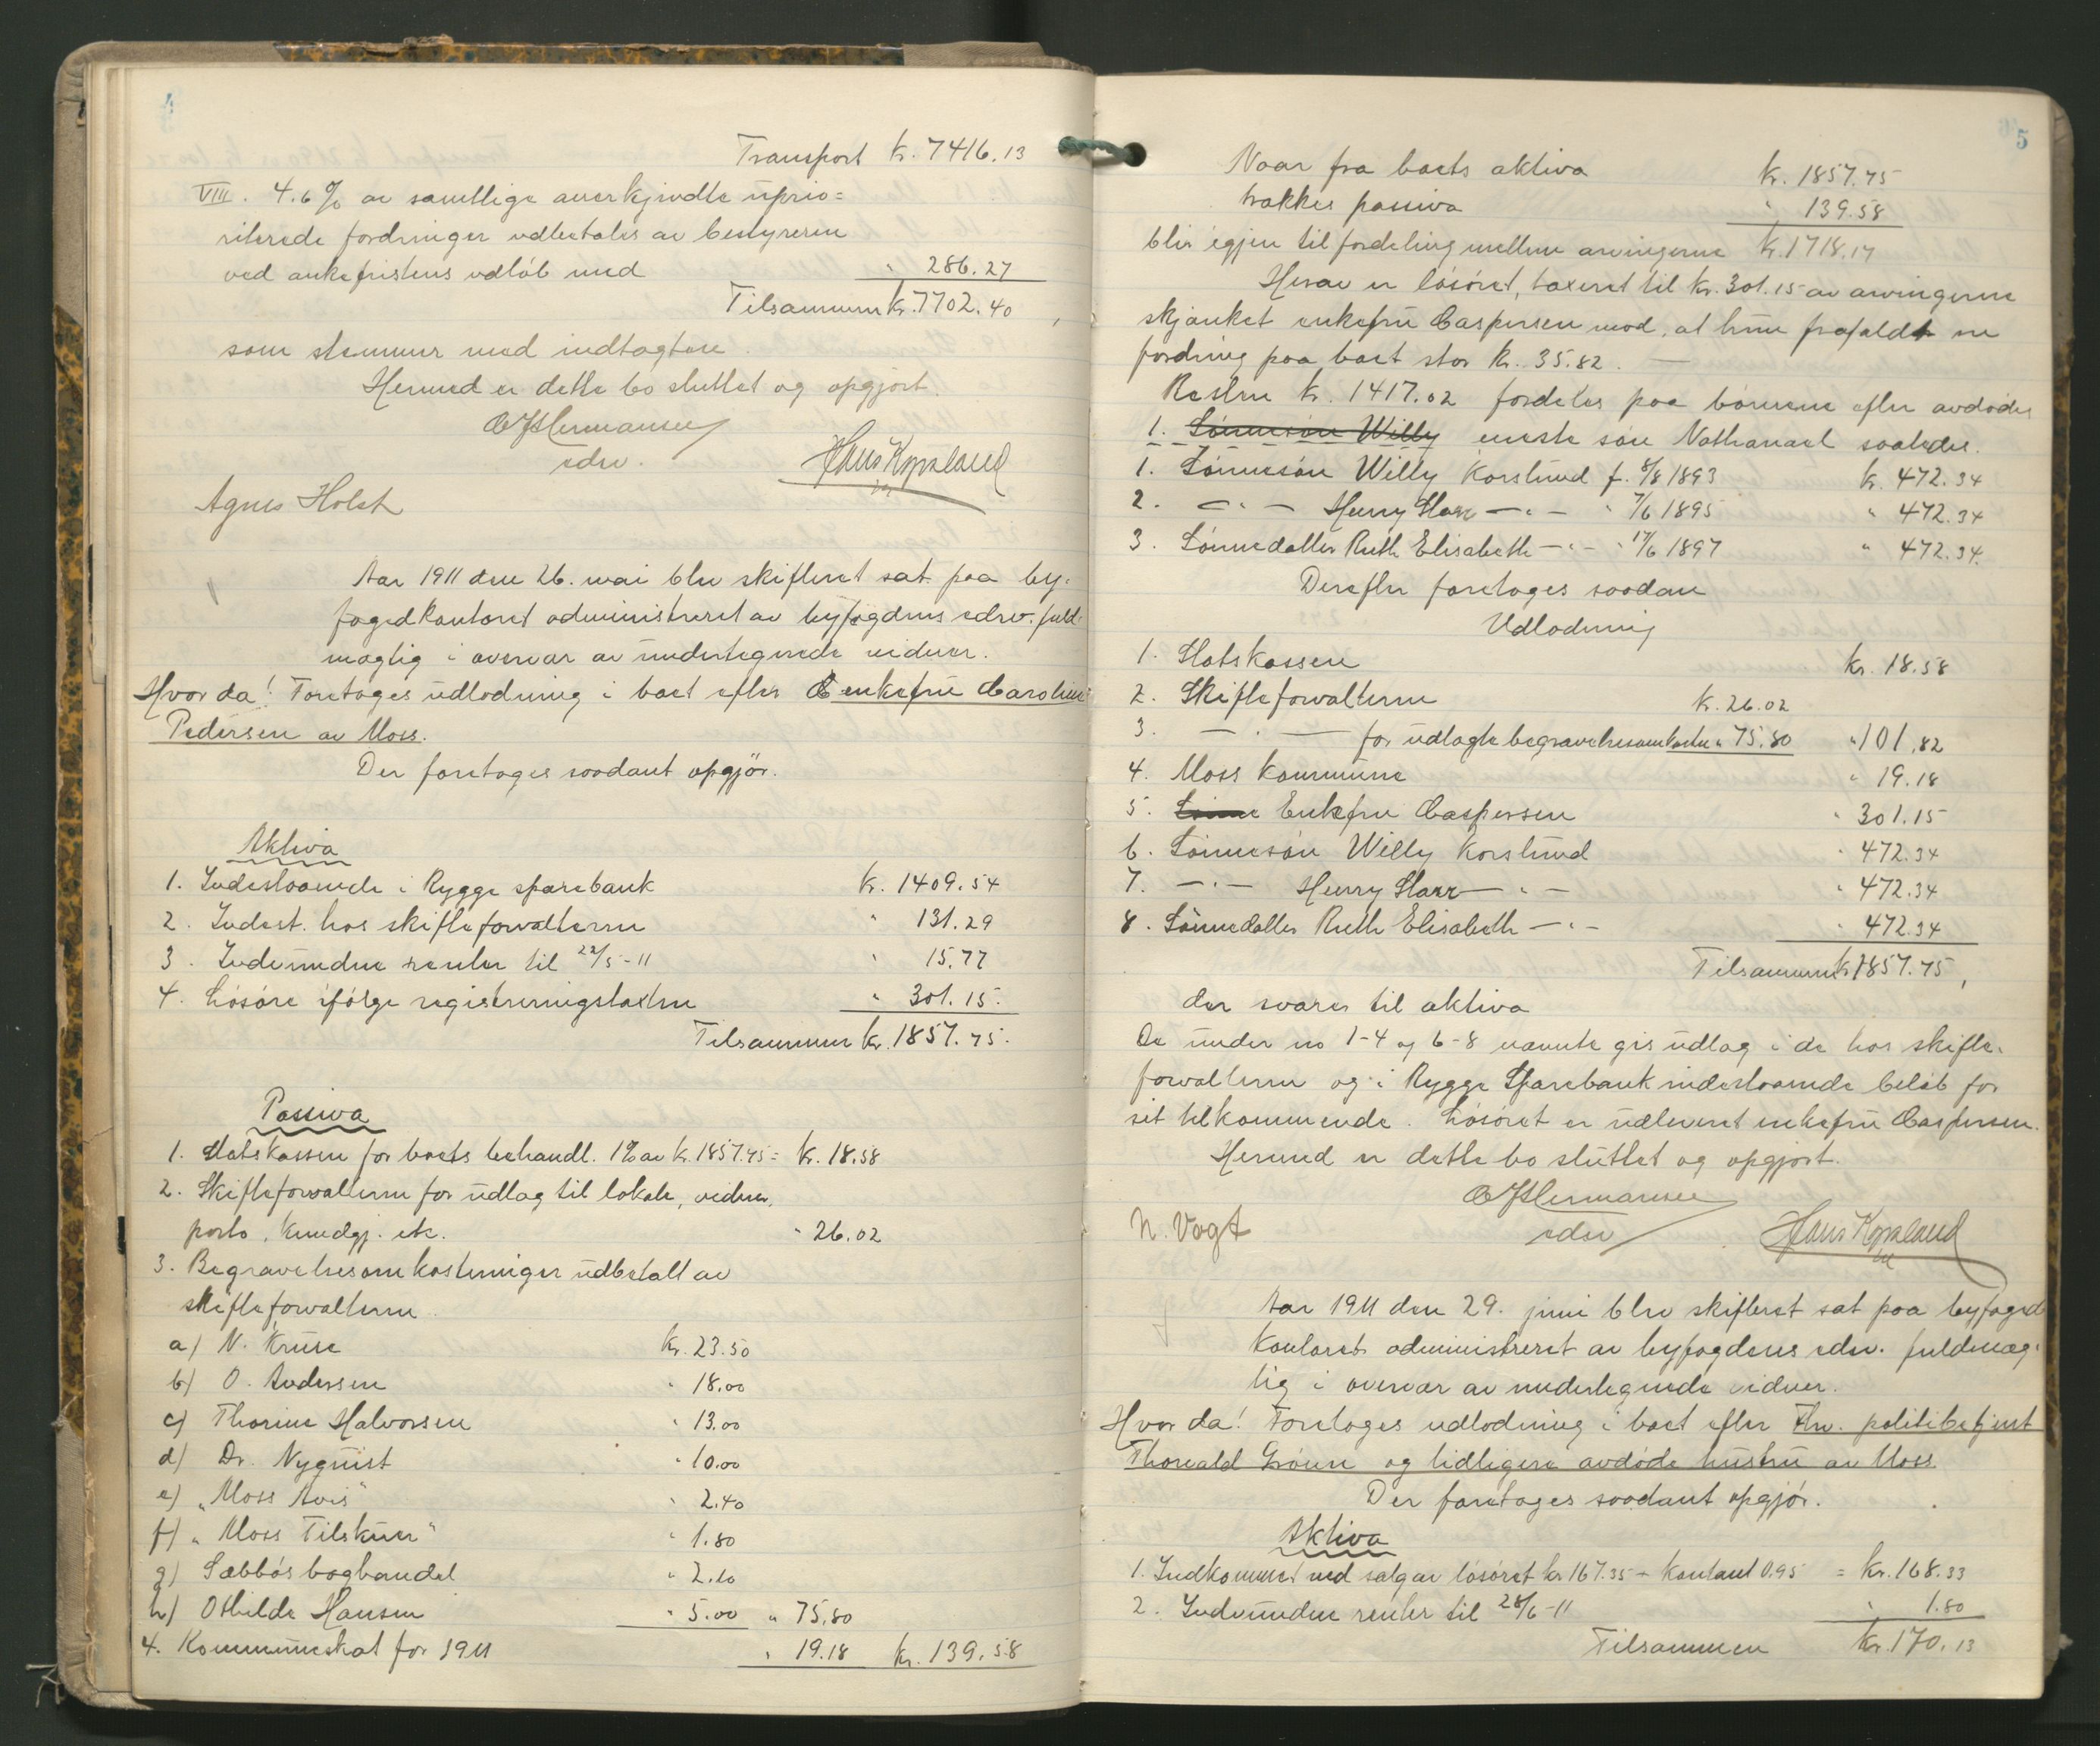 4
Transport kr. 7416.13
VIII. 4.6 % av samtlige anerkjendte uprio=
riterede fordringer udbetales av bestyreren
ved ankefristens udløb med " 286.27
Tilsammen kr. 7702.40,
som stemmer med indtægten.
Hermed er dette bo sluttet og opgjort.
O J Hermansen
edsv.
Hans Kopsland
Agnes Holst
Aar 1911 den 26. mai blev skifteret sat paa by-
fogedkontoret administreret av byfogdens edsv. fuld-
mægtig i overvær av undertegnede vidner.
Hvor da! Foretages udlodning i boet efter enkefru Caroline
Pedersen av Moss.
Der foretages saadant opgjør.
Aktiva
1. Indestaaende i Rygge sparebank kr. 1409.54
2. Indest. hos skifteforvalteren " 131.29
3. Indvundne renter til 22/5-11 " 15.77
4. Løsøre ifølge registreringstaxten " 301.15.
Tilsammen kr. 1857.75.
Passiva
1. Statskassen for boets behandl. 1% av kr. 1857.75 = kr. 18.58
2. Skifteforvalteren for udlæg til lokale, vidner,
porto, kundgj. etc. " 26.02
3. Begravelsesomkostninger udbetalt av
skifteforvalteren.
a) N. Kruse kr. 23.50
b) O. Andersen " 18.00
c) Thorine Halvorsen " 13.00
d) Dr. Nyquist " 10.00
e) "Moss Avis" " 2.40
f) "Moss Tilskuer" " 1.80
g) Sæbbøs boghandel " 2.10
h) Othilde Hansen " 5.00 " 75.80
4. Kommuneskat for 1911 " 19.18 kr. 139.58
5
Naar fra boets aktiva kr. 1857.75
trækkes passiva " 139.58
blir igjen til fordeling mellem arvingerne kr. 1718.17
Herav er løsøret, taxeret til kr. 301.15 av arvingerne
skjænket enkefru Caspersen mod, at hun frafaldt en
fordring paa boet stor kr. 35.82.
Resten kr. 1417.02 fordeles paa børnene efter avdødes
1. Sønnesøn Willy eneste søn Nathanael saaledes.
1. Sønnesøn Willy Korslund f. 8/8 1893 kr. 472.34
2. — " — Henry Starr — " — " 7/6 1895 " 472.34
3. Sønnedatter Ruth Elisabeth — " — " 17/6 1897 " 472.34.
Derefter foretages saadan
Udlodning
1. Statskassen kr. 18.58
2. Skifteforvalteren kr. 26.02
3. — " — for udlagte begravelsesomkostn. " 75.80 " 101.82
4. Moss kommune " 19.18
5. Enkefru Caspersen " 301.15
6. Sønnesøn Willy Korslund " 472.34
7. — " — Henry Starr — " — " 472.34
8. Sønnedatter Ruth Elisabeth — " — " 472.34
Tilsammen kr. 1857.75,
der svarer til aktiva
De under no 1-4 og 6-8 nævnte gis udlæg i de hos skifte-
forvalteren og i Rygge Sparebank indestaaende beløb for
sit tilkommende. Løsøret er udleveret enkefru Caspersen.
Hermed er dette bo sluttet og opgjort.
O J Hermansen
edsv
N. Vogt
Hans Kopsland
Aar 1911 den 29. juni blev skifteret sat paa byfoged
kontoret administreret av byfogdens edsv. fuldmæg-
tig i overvær av undertegnede vidner.
Hvor da! Foretages udlodning i boet efter fhv. politibetjent
Thorvald Grønn og tidligere avdøde hustru av Moss.
Der foretages saadant opgjør.
Aktiva
1. Indkommet ved salg av løsøret kr 167.35 + kontant 0.95 = kr. 168.33
2. Indvundne renter til 28/6-11 " 1.80
Tilsammen kr. 170.13